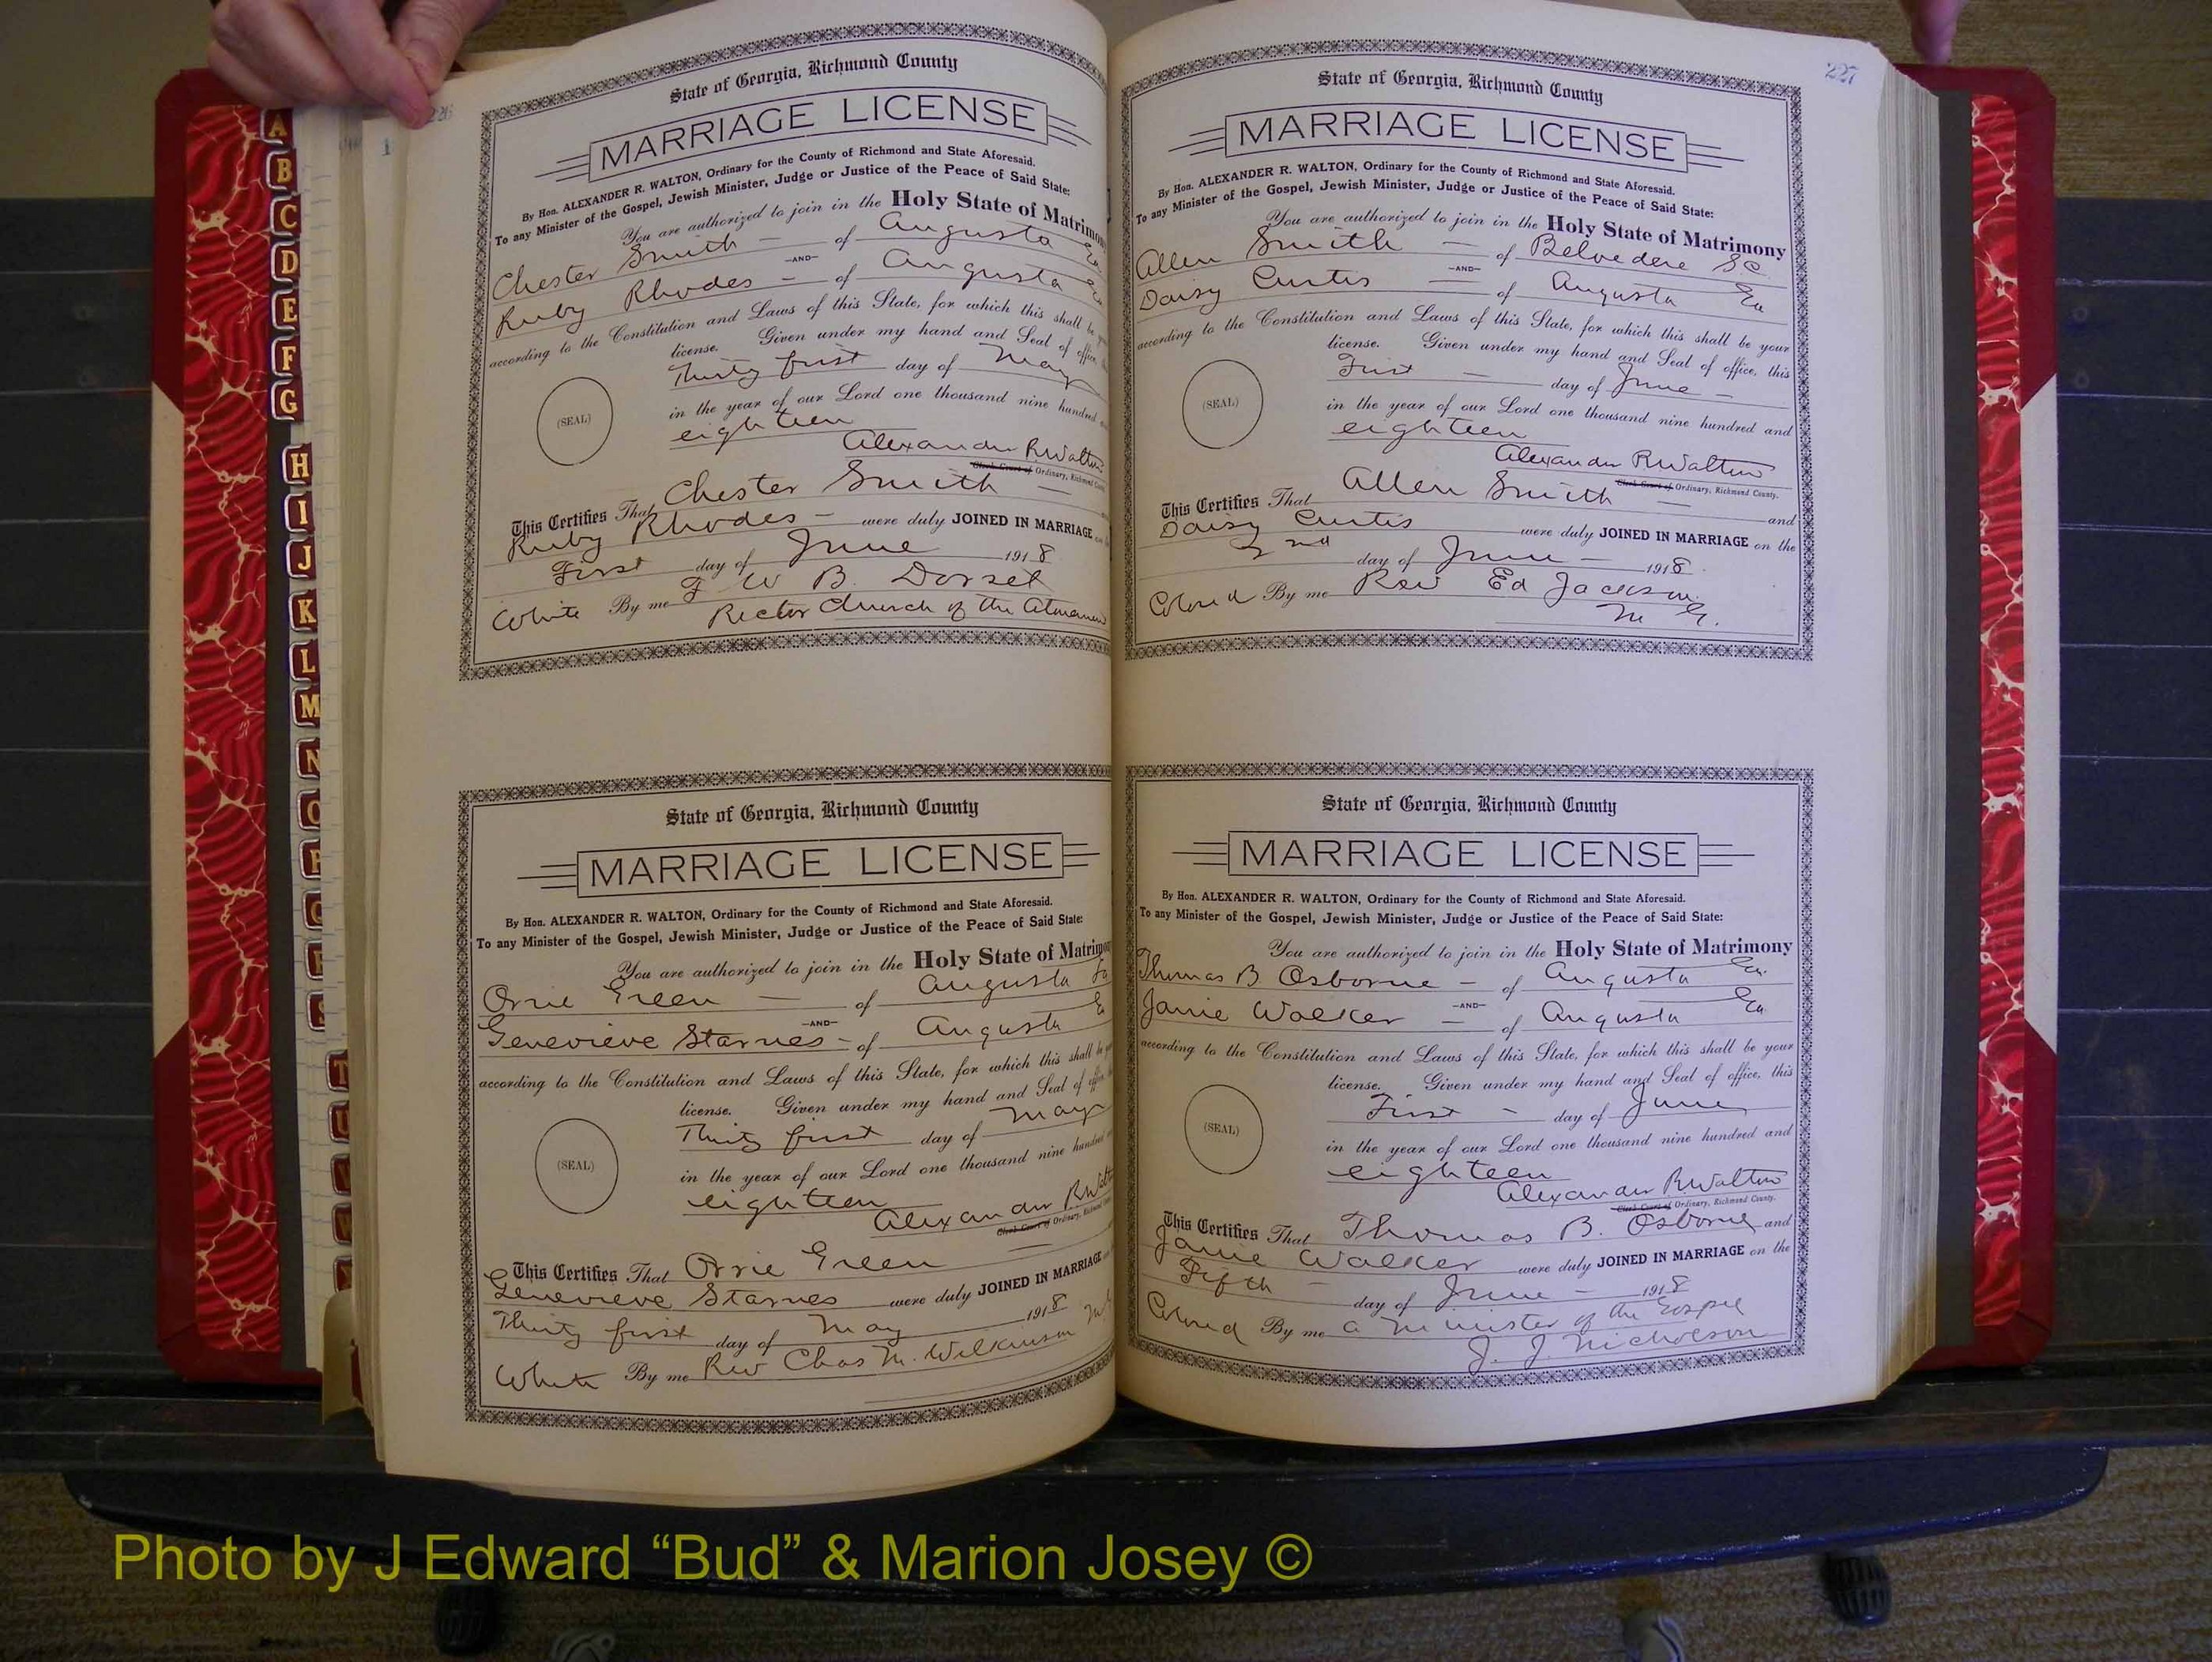 226
State of Georgia, Richmond County
MARRIAGE LICENSE
By Hon. ALEXANDER R. WALTON, Ordinary for the County of Richmond and State Aforesaid.
To any Minister of the Gospel, Jewish Minister, Judge or Justice of the Peace of Said State:
You are authorized to join in the Holy State of Matrimony
Chester Smith — of Augusta Ga
—AND—
Ruby Rhodes — of Augusta Ga
according to the Constitution and Laws of this State, for which this shall be
license. Given under my hand and Seal of office,
Thirty first day of May
(SEAL)
in the year of our Lord one thousand nine hundred
eighteen
Alexander R Walton
Clerk Court of Ordinary, Richmond County
This Certifies That Chester Smith —
Ruby Rhodes — were duly JOINED IN MARRIAGE on
First day of June 1918
White By me F W B. Dorset
Rector Church of the
State of Georgia, Richmond County
MARRIAGE LICENSE
By Hon. ALEXANDER R. WALTON, Ordinary for the County of Richmond and State Aforesaid.
To any Minister of the Gospel, Jewish Minister, Judge or Justice of the Peace of Said State:
You are authorized to join in the Holy State of Matrimony
Orrie Green — of Augusta Ga
—AND—
Genevieve Starnes — of Augusta Ga
according to the Constitution and Laws of this State, for which this shall be
license. Given under my hand and Seal of office,
Thirty first day of May
(SEAL)
in the year of our Lord one thousand nine hundred
eighteen
Alexander R Walton
Clerk Court of Ordinary, Richmond
This Certifies That Orrie Green —
Genevieve Starnes were duly JOINED IN MARRIAGE
Thirty first day of May 1918
White By me Rev Chas M. Wilkinson
227
State of Georgia, Richmond County
MARRIAGE LICENSE
By Hon. ALEXANDER R. WALTON, Ordinary for the County of Richmond and State Aforesaid.
To any Minister of the Gospel, Jewish Minister, Judge or Justice of the Peace of Said State:
You are authorized to join in the Holy State of Matrimony
Allen Smith — of Belvedere SC
—AND—
Daisy Curtis — of Augusta Ga
according to the Constitution and Laws of this State, for which this shall be your
license. Given under my hand and Seal of office, this
First — day of June —
(SEAL)
in the year of our Lord one thousand nine hundred and
eighteen
Alexander R Walton
Clerk Court of Ordinary, Richmond County.
This Certifies That Allen Smith — and
Daisy Curtis were duly JOINED IN MARRIAGE on the
2nd day of June — 1918
Colored By me Rev Ed Jackson
M G.
State of Georgia, Richmond County
MARRIAGE LICENSE
By Hon. ALEXANDER R. WALTON, Ordinary for the County of Richmond and State Aforesaid.
To any Minister of the Gospel, Jewish Minister, Judge or Justice of the Peace of Said State:
You are authorized to join in the Holy State of Matrimony
Thomas B Osborne — of Augusta Ga.
—AND—
Janie Walker — of Augusta Ga
according to the Constitution and Laws of this State, for which this shall be your
license. Given under my hand and Seal of office, this
First — day of June
(SEAL)
in the year of our Lord one thousand nine hundred and
eighteen
Alexander R Walton
Clerk Court of Ordinary, Richmond County.
This Certifies That Thomas B. Osborne and
Janie Walker were duly JOINED IN MARRIAGE on the
Fifth — day of June — 1918
Colored By me a Minister of the Gospel
J. J. Nicholson
A
B
C
D
E
F
G
H
I
J
K
L
M
N
O
P
Q
R
S
T
U
V
W
Photo by J Edward “Bud” & Marion Josey ©